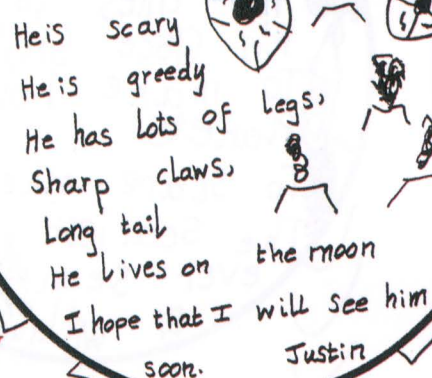 He is scary
He is greedy
He has lots of legs,
Sharp claws,
Long tail
He lives on the moon
I hope that I will see him
soon. Justin